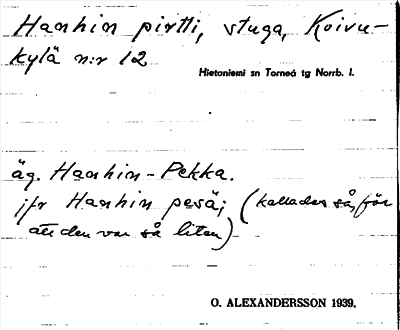 Hanhin pirtti, stuga, Koivu-
kylä n:r 12
Hietaniemi sn Torneå tg Norrb. l.
äg. Hanhin-Pekka.
jfr Hanhin pesä; (kallades så, för
att den var så liten)
O. ALEXANDERSSON 1939.